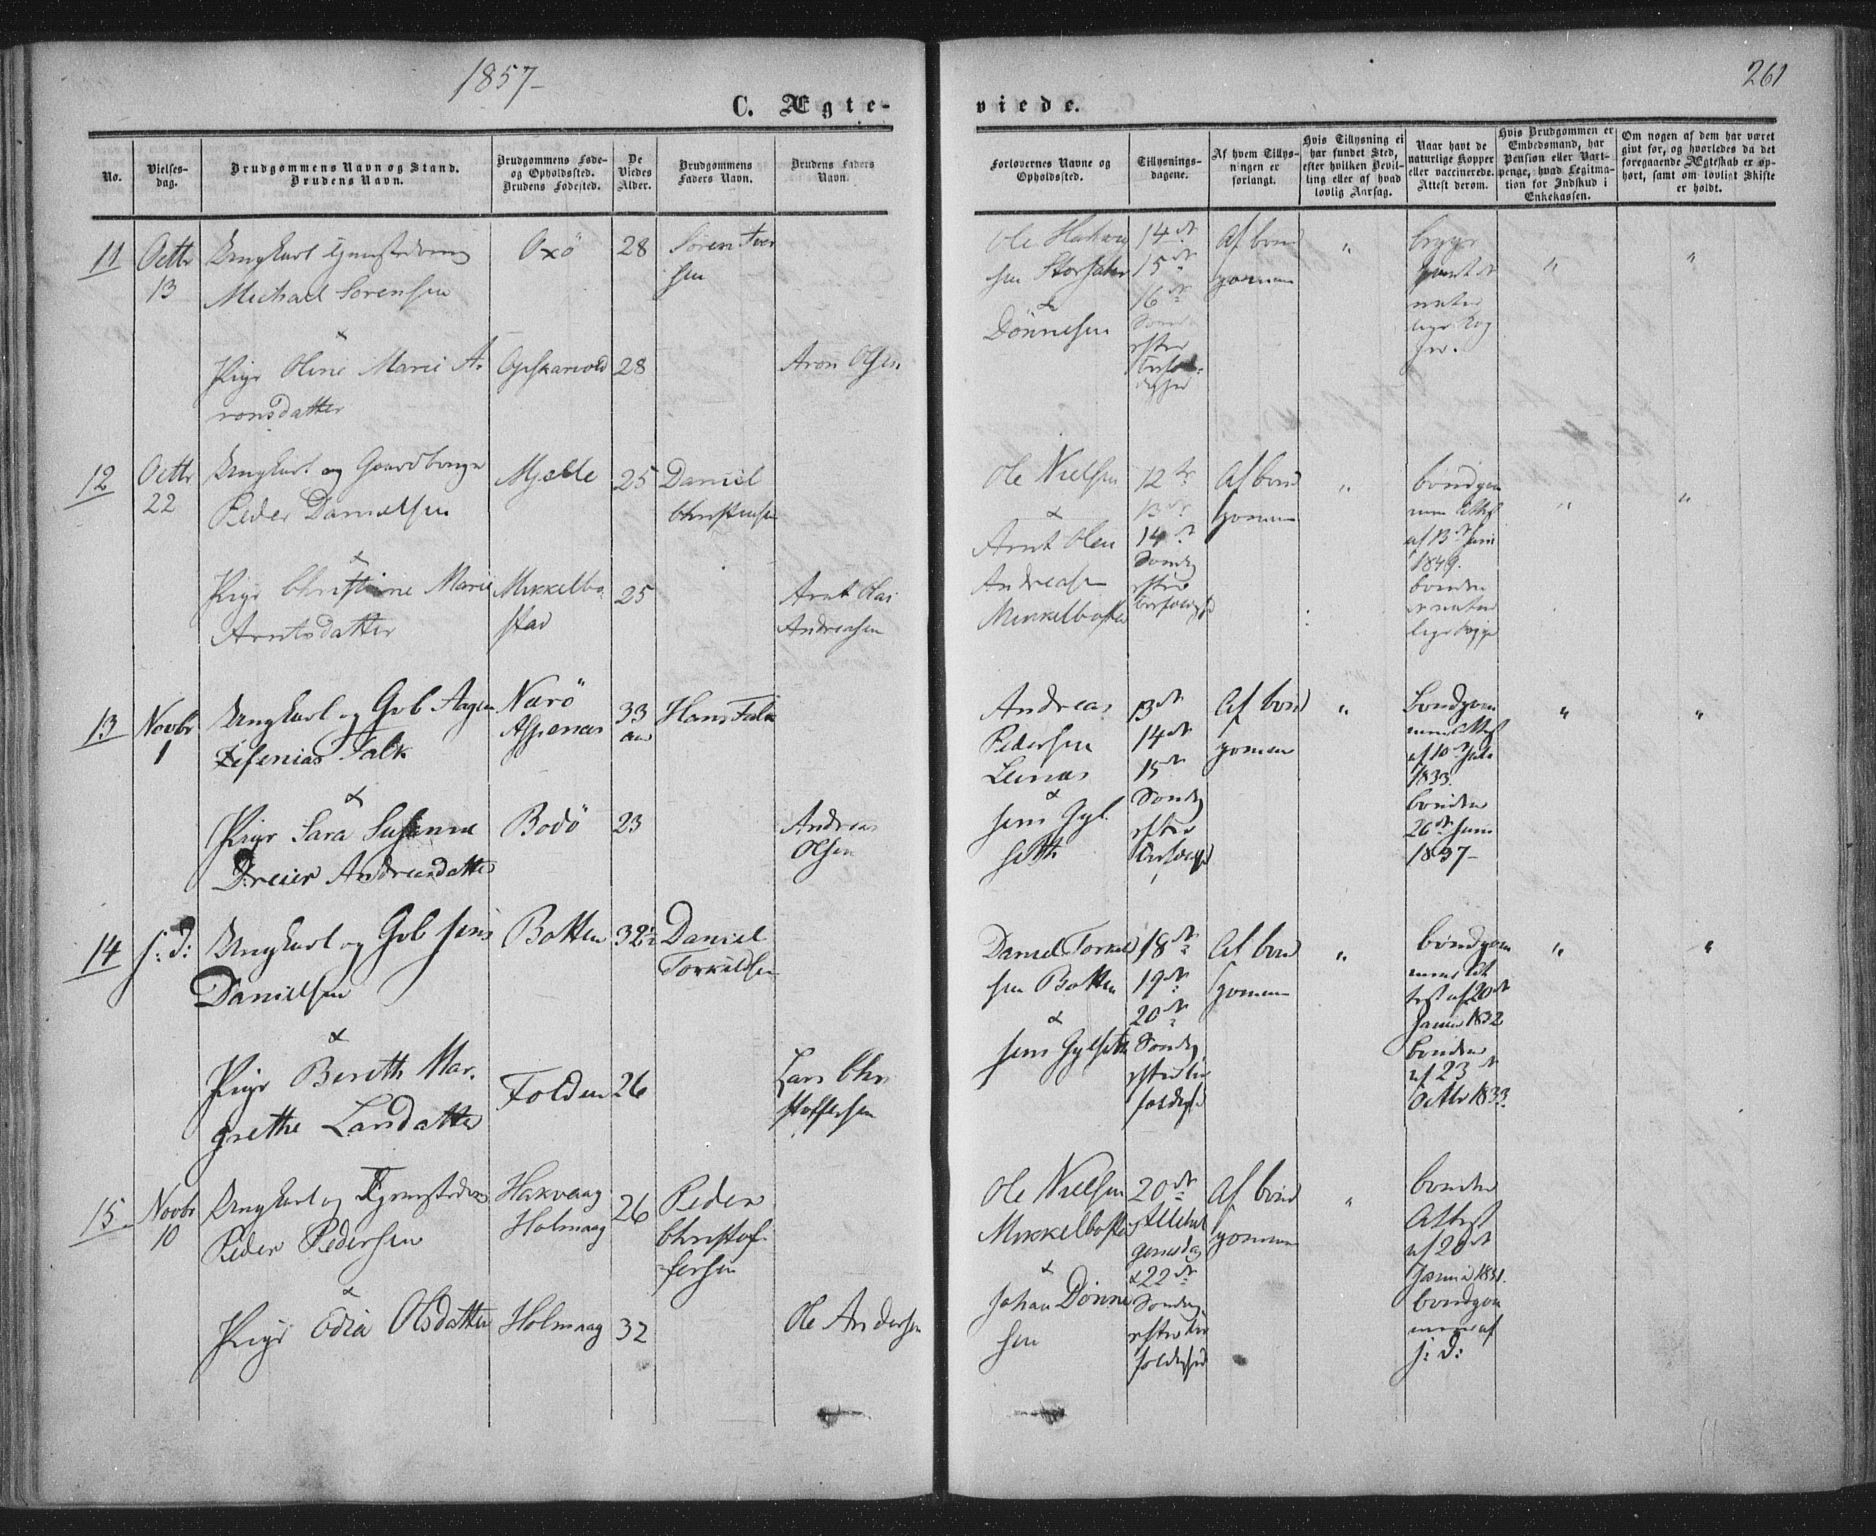 1857-
261
C. Ægte-
viede.
No.
Vielses-
dag.
Brudgommens Navn og Stand.
Brudens Navn.
Brudgommens Føde-
og Opholdssted.
Brudens Fødested.
De
Viedes
Alder.
Brudgommens
Faders Navn.
Brudens Faders
Navn.
Forlovernes Navne og
Opholdssted.
Tillysnings-
dagene.
Af hvem Tillys-
ningen er
forlangt.
Hvis Tillysning ei
har fundet Sted,
efter hvilken Bevil-
ling eller af hvad
lovlig Aarsag.
Naar havt de
naturlige Kopper
eller vaccinerede.
Attest derom.
Hvis Brudgommen er
Embedsmand, har
Pension eller Vart-
penge, hvad Legitima-
tion for Indskud i
Enkekassen.
Om nogen af dem har været
givt før, og hvorledes da det
foregaaende Ægteskab er op-
hørt, samt om lovligt Skifte
er holdt.
11
Octbr
13
Ungkarl
Michael Sørensen
&
Pige Oline Marie A-
ronsdatter
Oxö
28
28
Søren Iver
sen
Aron Olsen
Ole
sen
&
Dönnesen
14de
15de
16de
Sønd
efter
Af brud
gommen
"
"
"
12
Octbr
22
Ungkarl og Gaardbruger
Peder Danielsen
&
Pige Christine Marie
Arntsdatter
Mjelle
Mikkelbo
stad
25
25
Daniel
Christensen
Arnt
Andreasen
Ole Nielsen
&
Arnt
Andreasen
Mikkelbostad
12te
13de
14de
Søndg
efter
Af brud
gommen
"
brudgom
af 13de Juni
1849.
bruden
"
"
13
Novbr
1
Ungkarl og Gvb Aagen
Zefenias Falk
&
Pige Sara Susanne
Dreier Andreasdatter
Narö
Aspenes
Bodö
33
aar
23
Hans Falk
Andreas
Olsen
Andreas
Pedersen
Leinæs
&
Jens Gyl
seth
13de
14de
15de
Søndg
efter
Af brud
gommen
"
brudgom
af 10de Juli
1833.
bruden
26de Juni
1837-
"
"
14
s: d:
Ungkarl og Gvb Jens
Danielsen
&
Pige Bereth Mar-
grethe Larsdatter
Botten
Folden
32½
26
Daniel
Torkildsen
Lars Chri
stoffersen
Daniel Torkild
sen Botten
&
Jens Gylseth
18de
19de
20de
Søndg
efter
Af brud
gommen
"
brudgom
mens At
test af 20de
Januar 1832
bruden
af 23de
Octbr 1833.
"
"
15
Novbr
10
Ungkarl og
Peder Pedersen
&
Pige Edia Olsdatter
Hakvaag
Holmaag
Holmaag
26
32
Peder
Christof
fersen
Ole Andersen
Ole Nielsen
Mikkelbostad
&
Johan Dönne
sen
20de
Allehel
gensdag
& 22de
Søndag
efter
Af brud
gommen
"
bruden
Attest
af 20de
Januar 1831.
brudgom
men af
s: d: